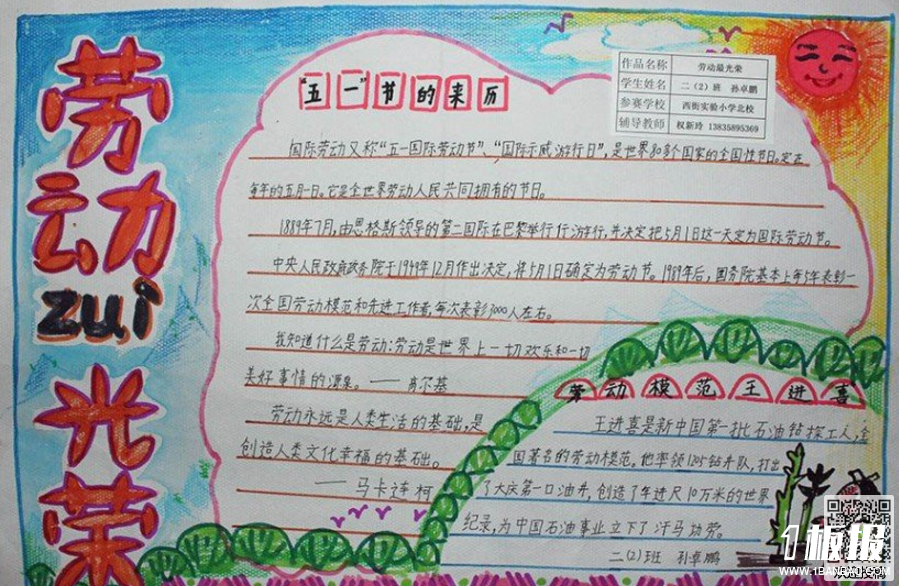 劳动zui光荣
作品名称 劳动最光荣
学生姓名 二（2）班 孙卓鹏
参赛学校 西街实验小学北校
辅导教师 权新玲 13835895369
"五一"节的来历
国际劳动又称"五一国际劳动节"、"国际示威游行日"，是世界80多个国家的全国性节日。定在
每年的五月一日。它是全世界劳动人民共同拥有的节日。
1889年7月，由恩格斯领导的第二国际在巴黎举行行游行，并决定把5月1日这一天定为国际劳动节。
中央人民政府政务院于1949年12月作出决定，将5月1日确定为劳动节。1989年后，国务院基本上每5年表彰一
次全国劳动模范和先进工作者，每次表彰3000人左右。
我知道什么是劳动：劳动是世界上一切欢乐和一切
美好事情的源泉。——高尔基
劳动永远是人类生活的基础，是
创造人类文化幸福的基础。
——马卡连柯
劳动模范王进喜
王进喜是新中国第一批石油钻探工人，全
国著名的劳动模范。他率领1205钻井队，打出
了大庆第一口油井，创造了年进尺10万米的世界
纪录，为中国石油事业立下了汗马功劳。
二（2）班 孙卓鹏
1板报
WWW.1BANBAO.COM